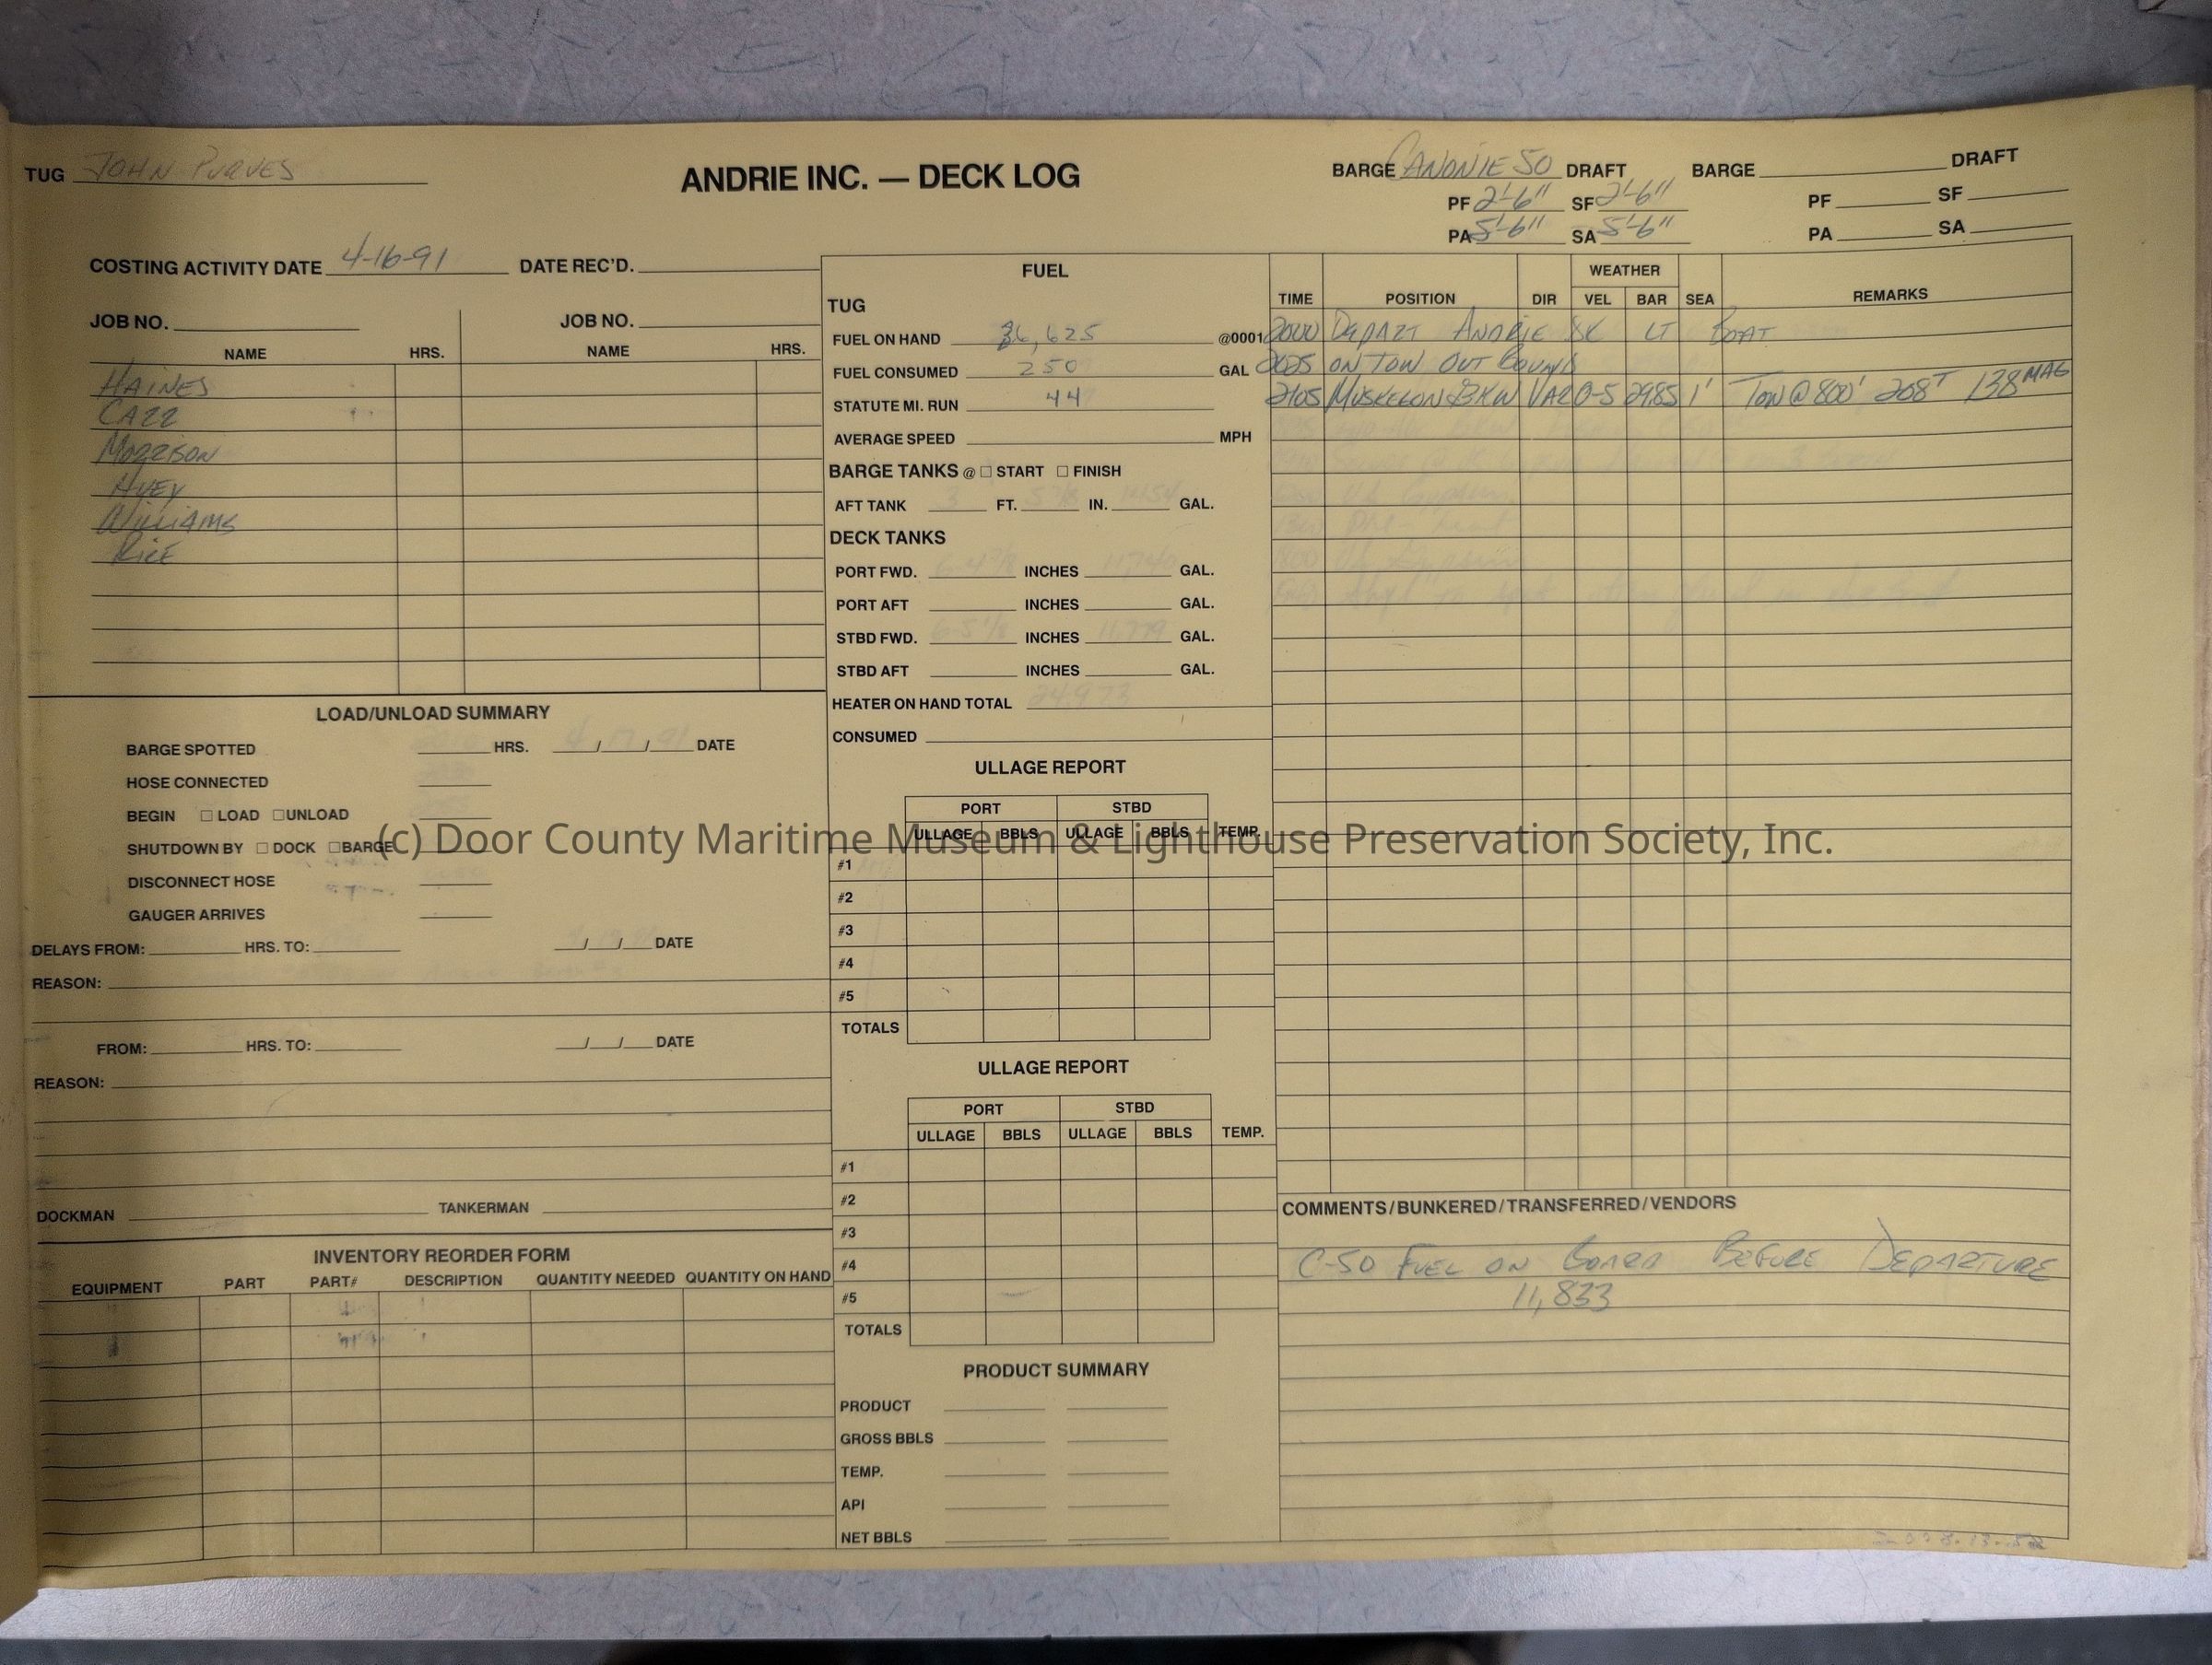 TUG JOHN PURVES
ANDRIE INC. — DECK LOG
BARGE CANONIE 50 DRAFT
PF 2'-6" SF 2'-6"
PA 5'-6" SA 5'-6"
BARGE DRAFT
PF SF
PA SA
COSTING ACTIVITY DATE 4-16-91 DATE REC'D.
JOB NO. JOB NO.
NAME HRS. NAME HRS.
HAINES
CARR
MORRISON
HUEY
WILLIAMS
RICE
LOAD/UNLOAD SUMMARY
BARGE SPOTTED HRS. / / DATE
HOSE CONNECTED
BEGIN ☐ LOAD ☐ UNLOAD
SHUTDOWN BY ☐ DOCK ☐ BARGE
DISCONNECT HOSE
GAUGER ARRIVES
DELAYS FROM: HRS. TO: / / DATE
REASON:
FROM: HRS. TO: / / DATE
REASON:
DOCKMAN TANKERMAN
INVENTORY REORDER FORM
EQUIPMENT PART PART# DESCRIPTION QUANTITY NEEDED QUANTITY ON HAND
FUEL
TUG
FUEL ON HAND 36,625 @0001
FUEL CONSUMED 250 GAL
STATUTE MI. RUN 44
AVERAGE SPEED MPH
BARGE TANKS @ ☐ START ☐ FINISH
AFT TANK FT. IN. GAL.
DECK TANKS
PORT FWD. INCHES GAL.
PORT AFT INCHES GAL.
STBD FWD. INCHES GAL.
STBD AFT INCHES GAL.
HEATER ON HAND TOTAL
CONSUMED
ULLAGE REPORT
PORT STBD
ULLAGE BBLS ULLAGE BBLS TEMP.
#1
#2
#3
#4
#5
TOTALS
ULLAGE REPORT
PORT STBD
ULLAGE BBLS ULLAGE BBLS TEMP.
#1
#2
#3
#4
#5
TOTALS
PRODUCT SUMMARY
PRODUCT
GROSS BBLS
TEMP.
API
NET BBLS
WEATHER
TIME POSITION DIR VEL BAR SEA REMARKS
2000 DEPART ANDRIE SK LT BOAT
2025 ON TOW OUT BOUND
2105 MUSKEGON BKW VAR 0-5 29.85 1' TOW @ 800' 208T 138 MAG
COMMENTS/BUNKERED/TRANSFERRED/VENDORS
C-50 FUEL ON BOARD BEFORE DEPARTURE
11,833
(c) Door County Maritime Museum & Lighthouse Preservation Society, Inc.